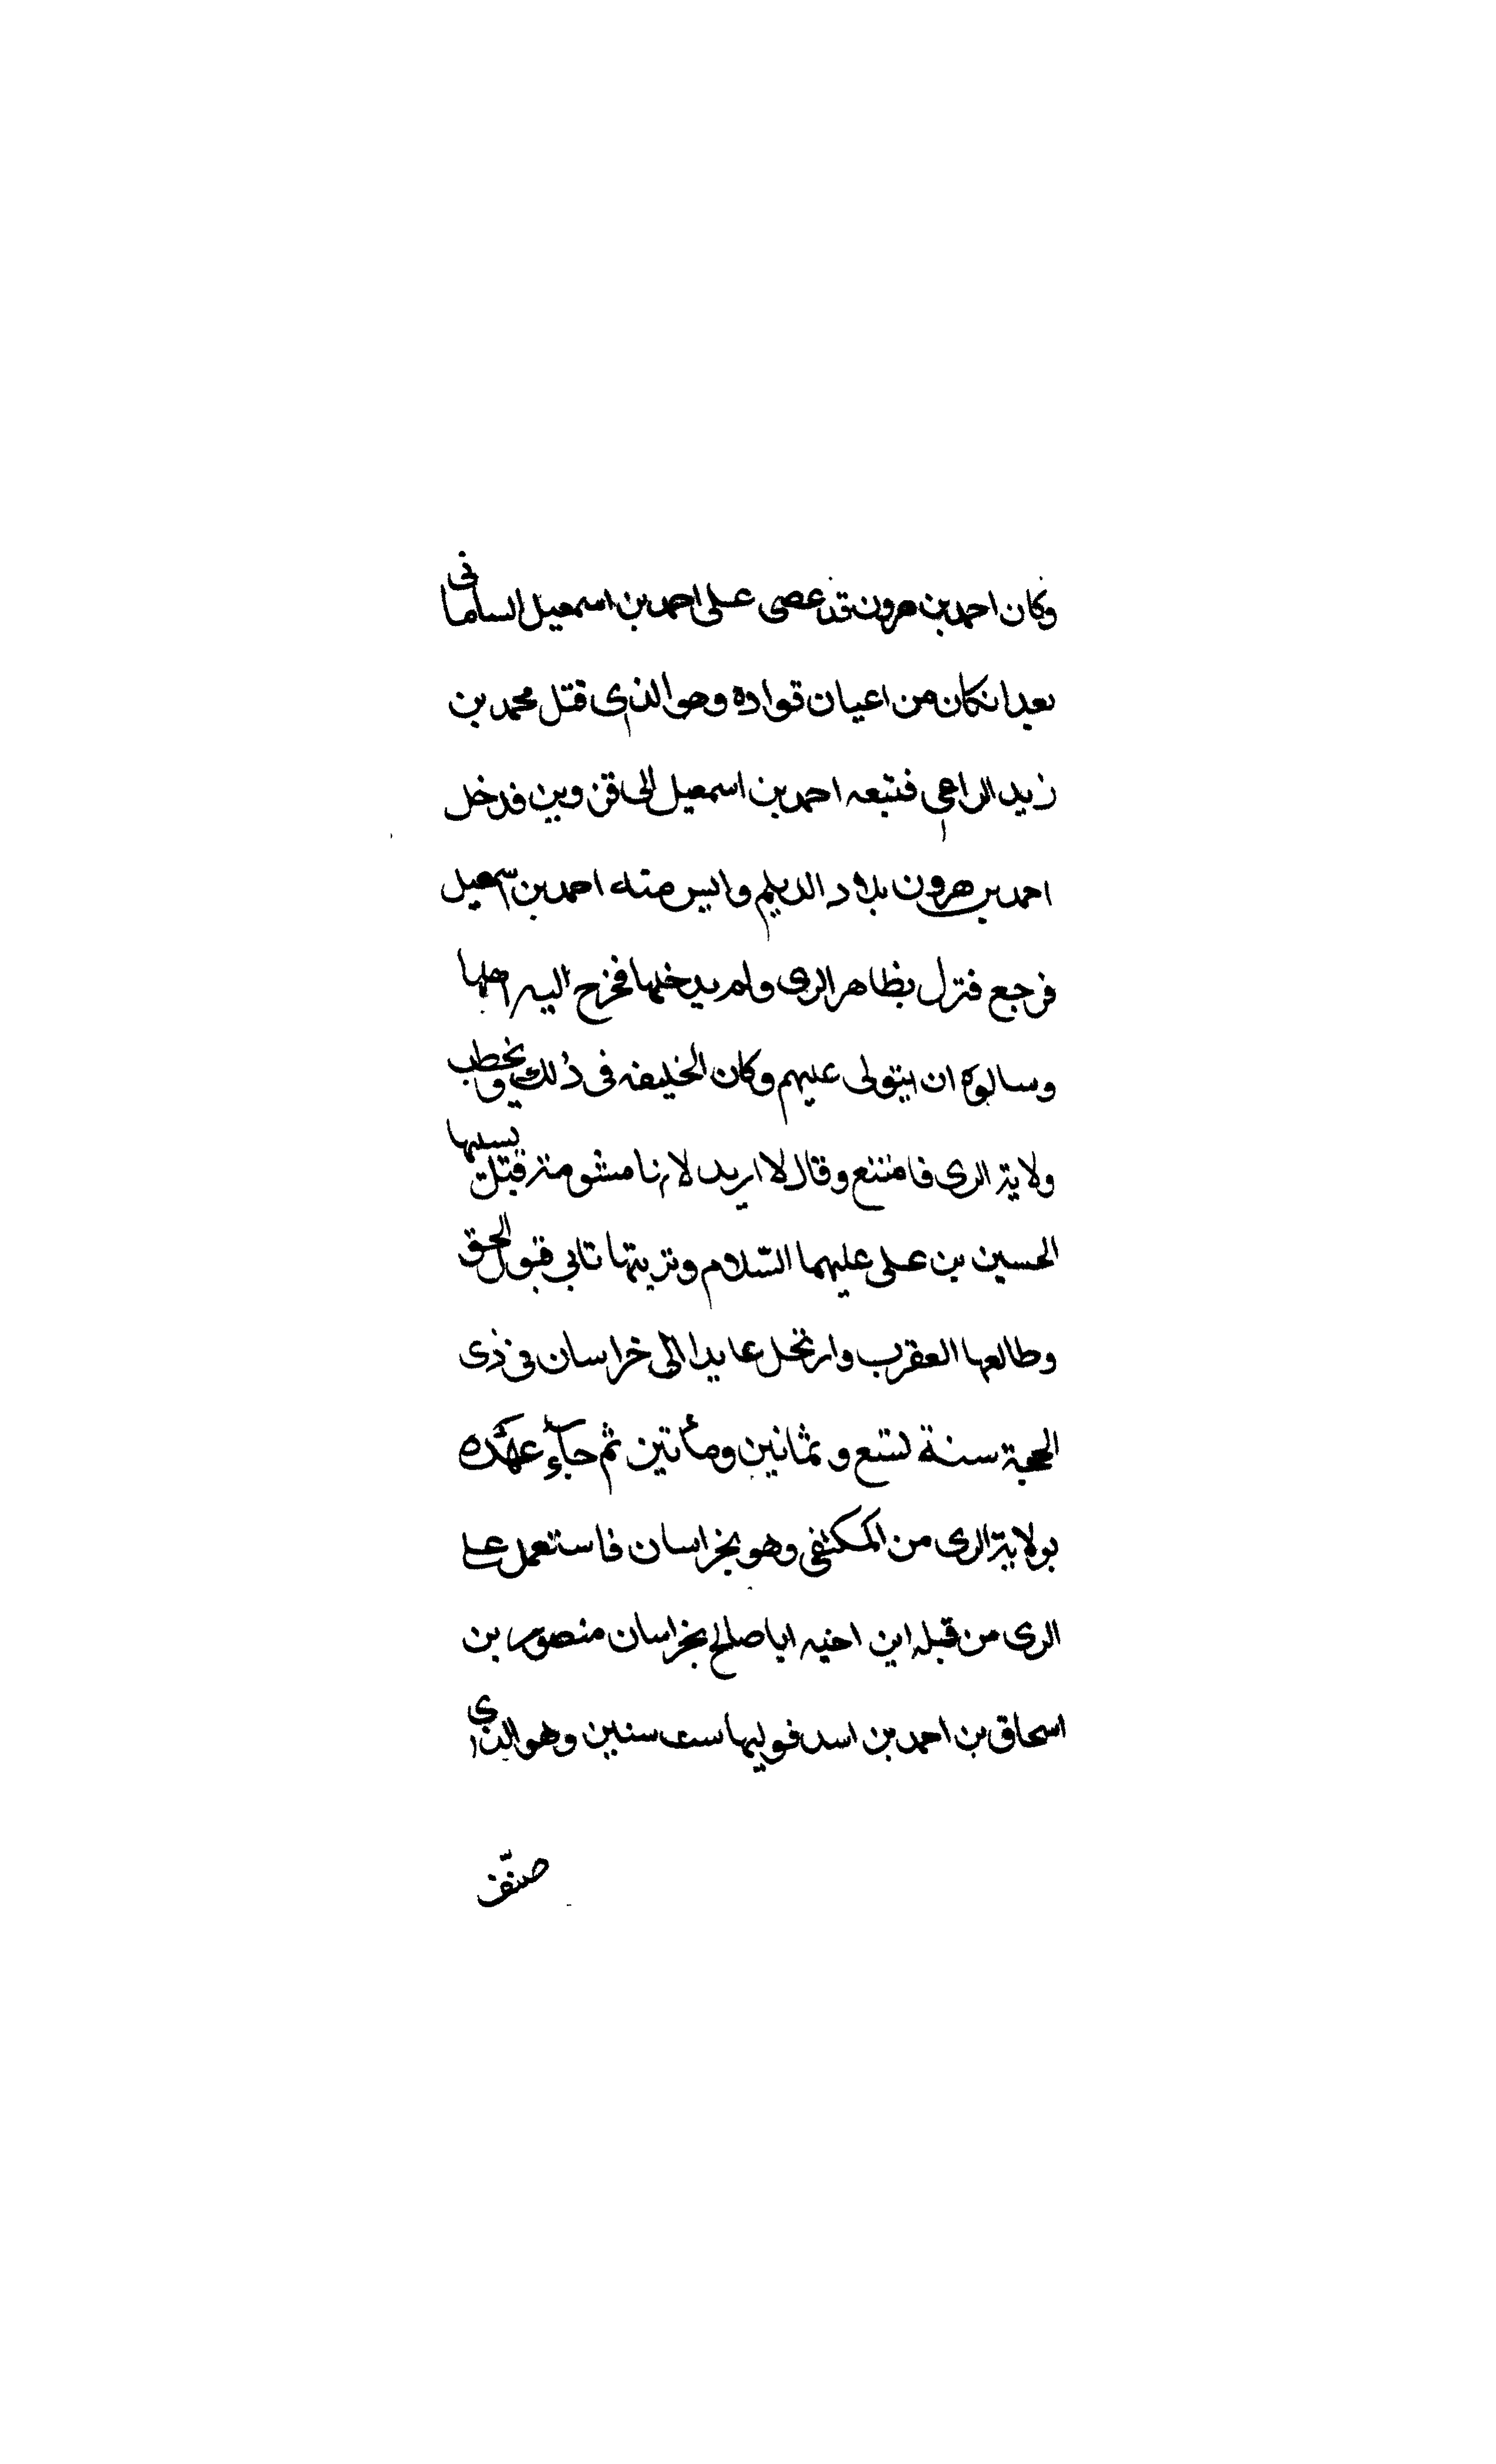 وكان احمد بن هرون قد عصى على احمد بن اسمعيل السامانى
بعد انكان من اعيان قواده وهو الذى قتل محمد بن
زيد الراعى فتبعه احمد بن اسمعيل الى قزوين فدخل
احمد بن هرون بلاد الديلم وايس منه احمد بن اسمعيل
فرجع فنزل بظاهر الرى ولم يدخلها فخرج اليه اهلها
وسالوه ان يتولى عليهم وكان الخليفه فى ذلك ويخطب
ولاية الرى فامتنع وقال لا اريد لانها مشومة قبتلت بسببها
الحسين بن على عليهما السّلام وتربتها تابي قبول الحق
وطالعها العقرب وارتحل عايدا الى خراسان فى ذى
الحجة سنة تسع وثمانين ومأتين ثم جآء عهده
بولاية الرى من المكتفى وهو بخراسان فاستعمل على
الرى من قبله ابن اخيه ابا صالح بخراسان منصور بن
اسحاق بن احمد بن اسد فوليها ست سنين وهو الذي
صنّف